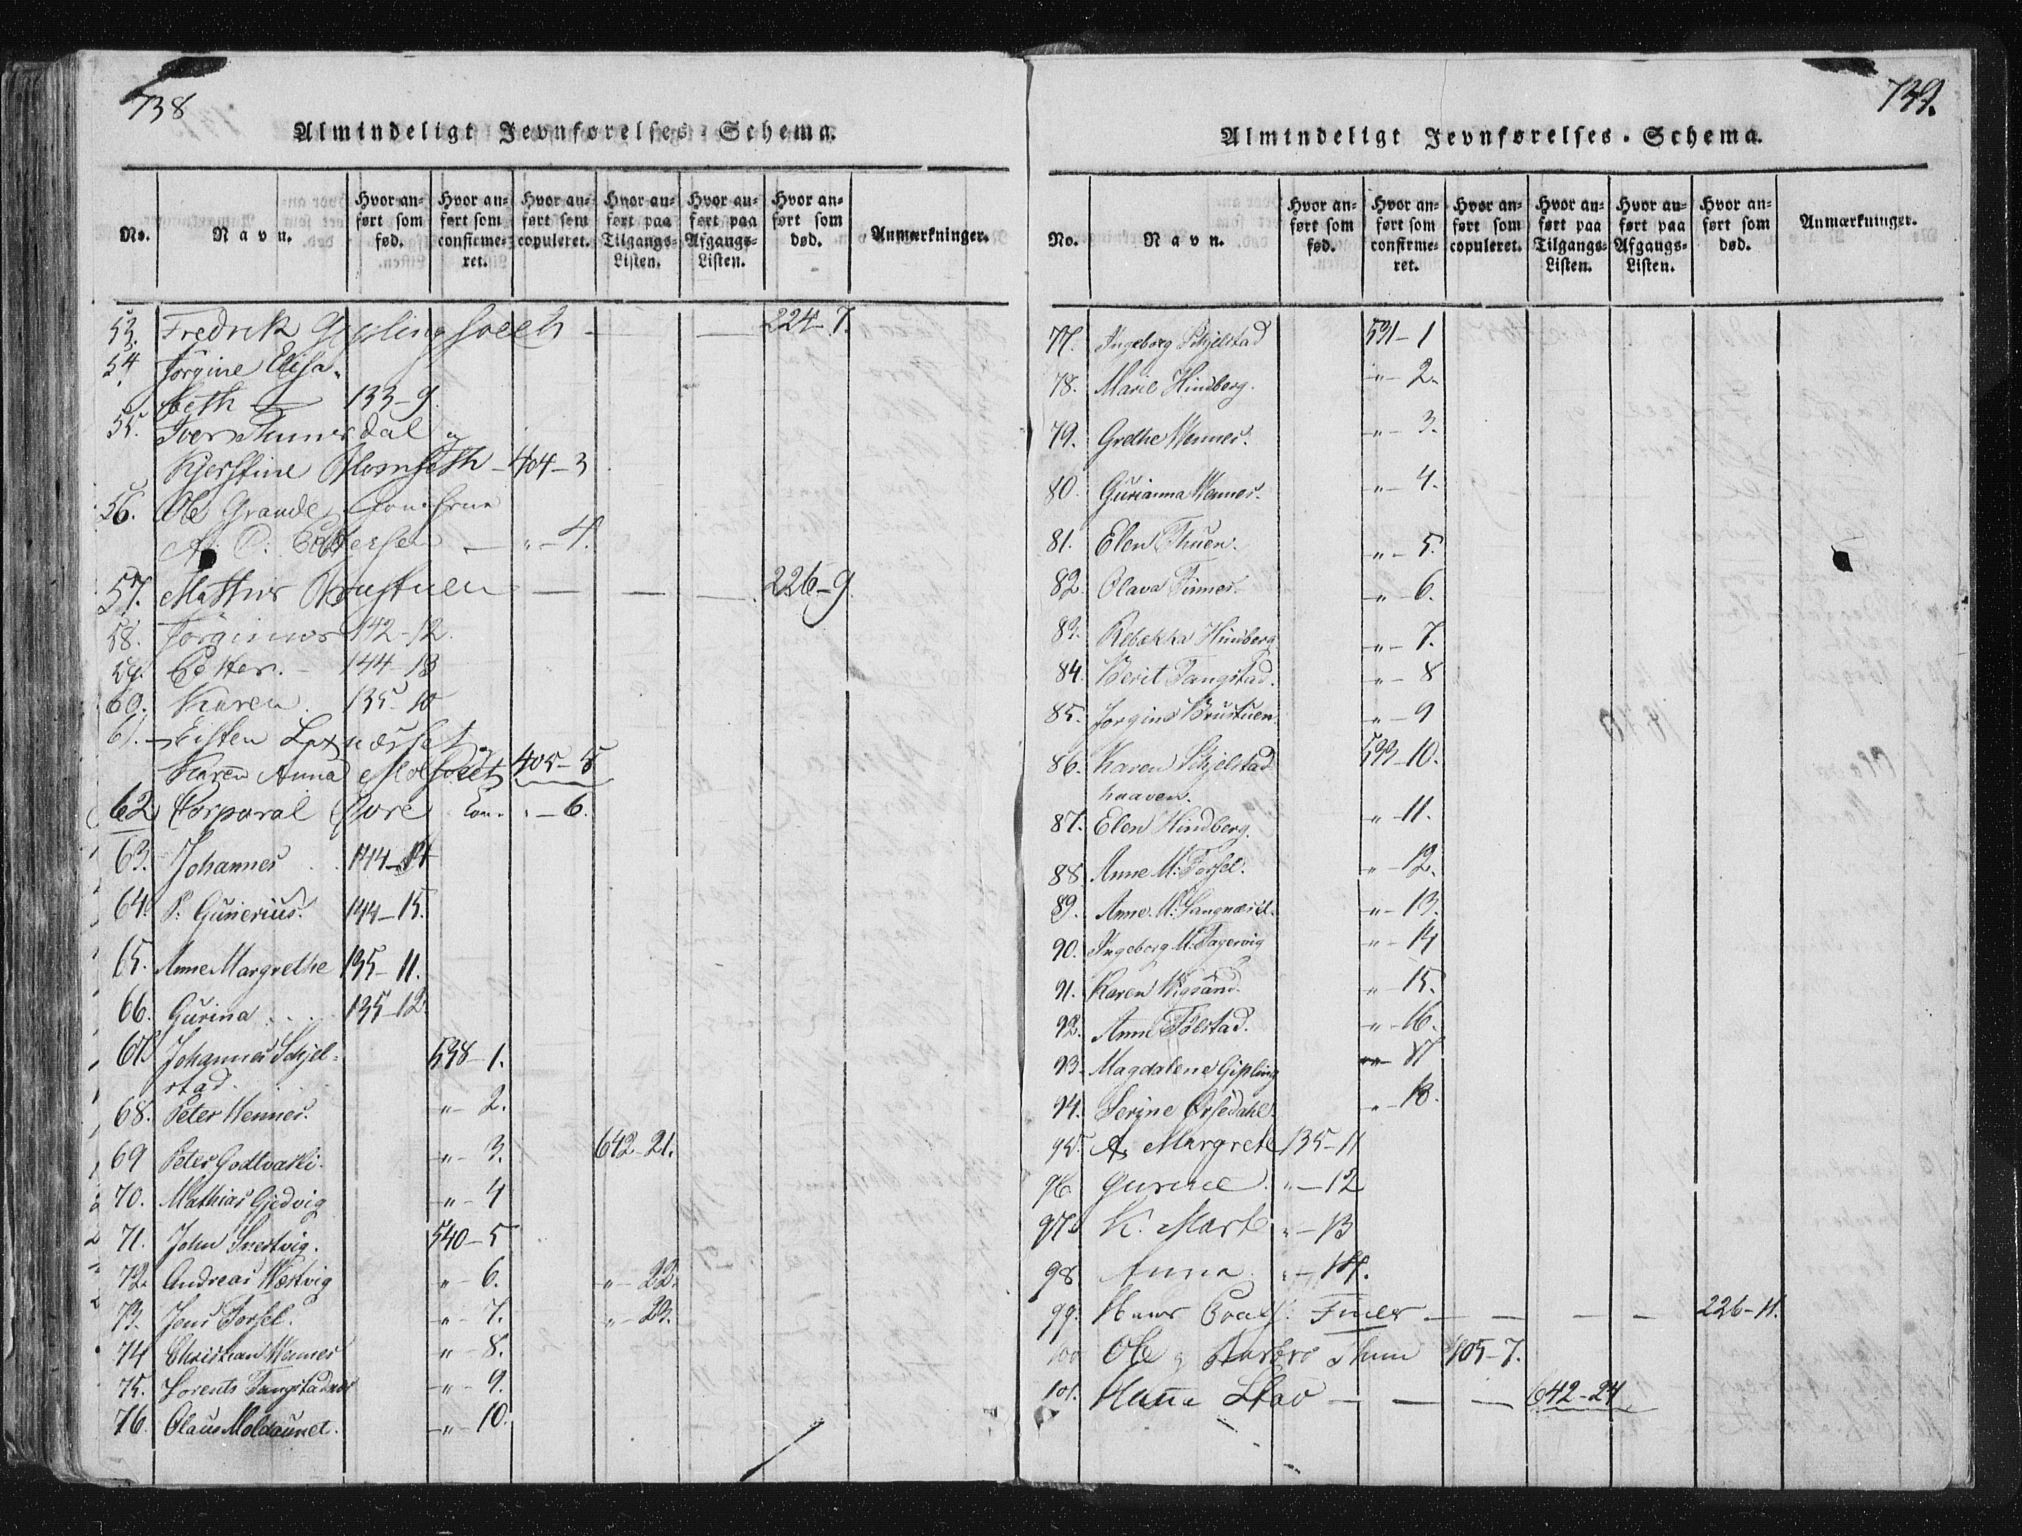 738
Almindeligt Jevnførelses-Schema.
No. Navn. Hvor anført som fød. Hvor anført som confirmeret. Hvor anført som copuleret. Hvor anført paa Tilgangs-Listen. Hvor anført paa Afgangs-Listen. Hvor anført som død. Anmærkninger.
53. Fredrik 224-7.
54. Jørgine Elisa-
beth 133-9.
55. Iver dal og
Kjerstine 404-3
56. Ole Grande
" - 4.
57. Mathis Brustuen 226-9.
58. Jørginus 142-12.
59. Petter. 144-13
60. Karen. 135-10
61.
Karen Anna 405-5
62 Corporal Øvre " - 6.
63. Johannes 144-14
64. P: Gunerius. 144-15.
65. Anne Margrethe 135-11.
66. Gurina 135-12.
67. Johannes Schjel-
stad. 538-1.
68. Peter Wennes. " - 2.
69 Peter " - 3. 642-21.
70. Mathias Gjedvig " - 4
71. John 540-5
72. Andreas Wæstvig " - 6. " - 22.
73. Jens Forsel. " - 7. " - 23.
74 Christian Wennes " - 8.
75. Lorents " - 9.
76. Olaus Moldaunet. " - 10.
739.
Almindeligt Jevnførelses-Schema.
No. Navn. Hvor anført som fød. Hvor anført som confirmeret. Hvor anført som copuleret. Hvor anført paa Tilgangs-Listen. Hvor anført paa Afgangs-Listen. Hvor anført som død. Anmærkninger.
77. Ingeborg Schjelstad 531-1
78. Marie Hindberg. " - 2.
79. Grethe Wennes. " - 3.
80. Gurianna Wennes. " - 4.
81. Elen Thuen. " - 5.
82. Olava Finnes. " - 6.
83. Rebekka Hindberg " - 7.
84. Berit Tangstad. " - 8
85. Jorgine Brustuen " - 9
86. Karen Schjelstad
haaven. 533-10.
87. Elen Hindberg. " - 11.
88 Anne M: Forsel. " - 12.
89. Anne M: Langnæset. " - 13.
90. Ingeborg M: Fagervig " - 14
91. Karen Wigsand. " - 15.
92. Anne " - 16.
93. Magdalene Gipling " - 17
94. Serine " - 18.
95. A. Margrete 135-11
96 Gurine " - 12
97. K. Marte " - 13
98 Anna " - 14.
99. Hans 226-11.
100 Ole og Barbro Thuen 405-7.
101. Hanna Stav 642-24